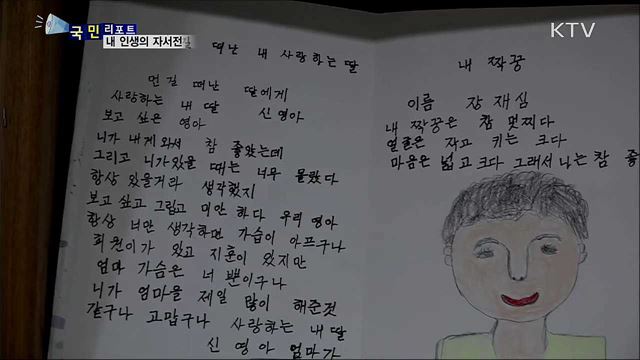 국민 리포트
내 인생의 자서전
KTV
떠난 내 사랑하는 딸
먼길 떠난 딸에게
사랑하는 내 딸 신영아
보고 싶은 영아
니가 내게 와서 참 좋았는데
그리고 니가 있을 때는 너무 몰랐다
항상 있을거라 생각했지
보고 싶고 그립고 미안 하다 우리 영아
항상 너만 생각하면 가습이 아프구나
희천이가 있고 지훈이 있지만
엄마 가슴은 너 뿐이구나
니가 엄마을 제일 많이 해준것
같구나 고맙구나 사랑하는 내 딸
신영아 엄마가
내 짝꿍
이름 장재심
내 짝꿍은 참 멋찌다
얼굴은 자고 키는 크다
마음은 넓고 크다 그래서 나는 참 좋